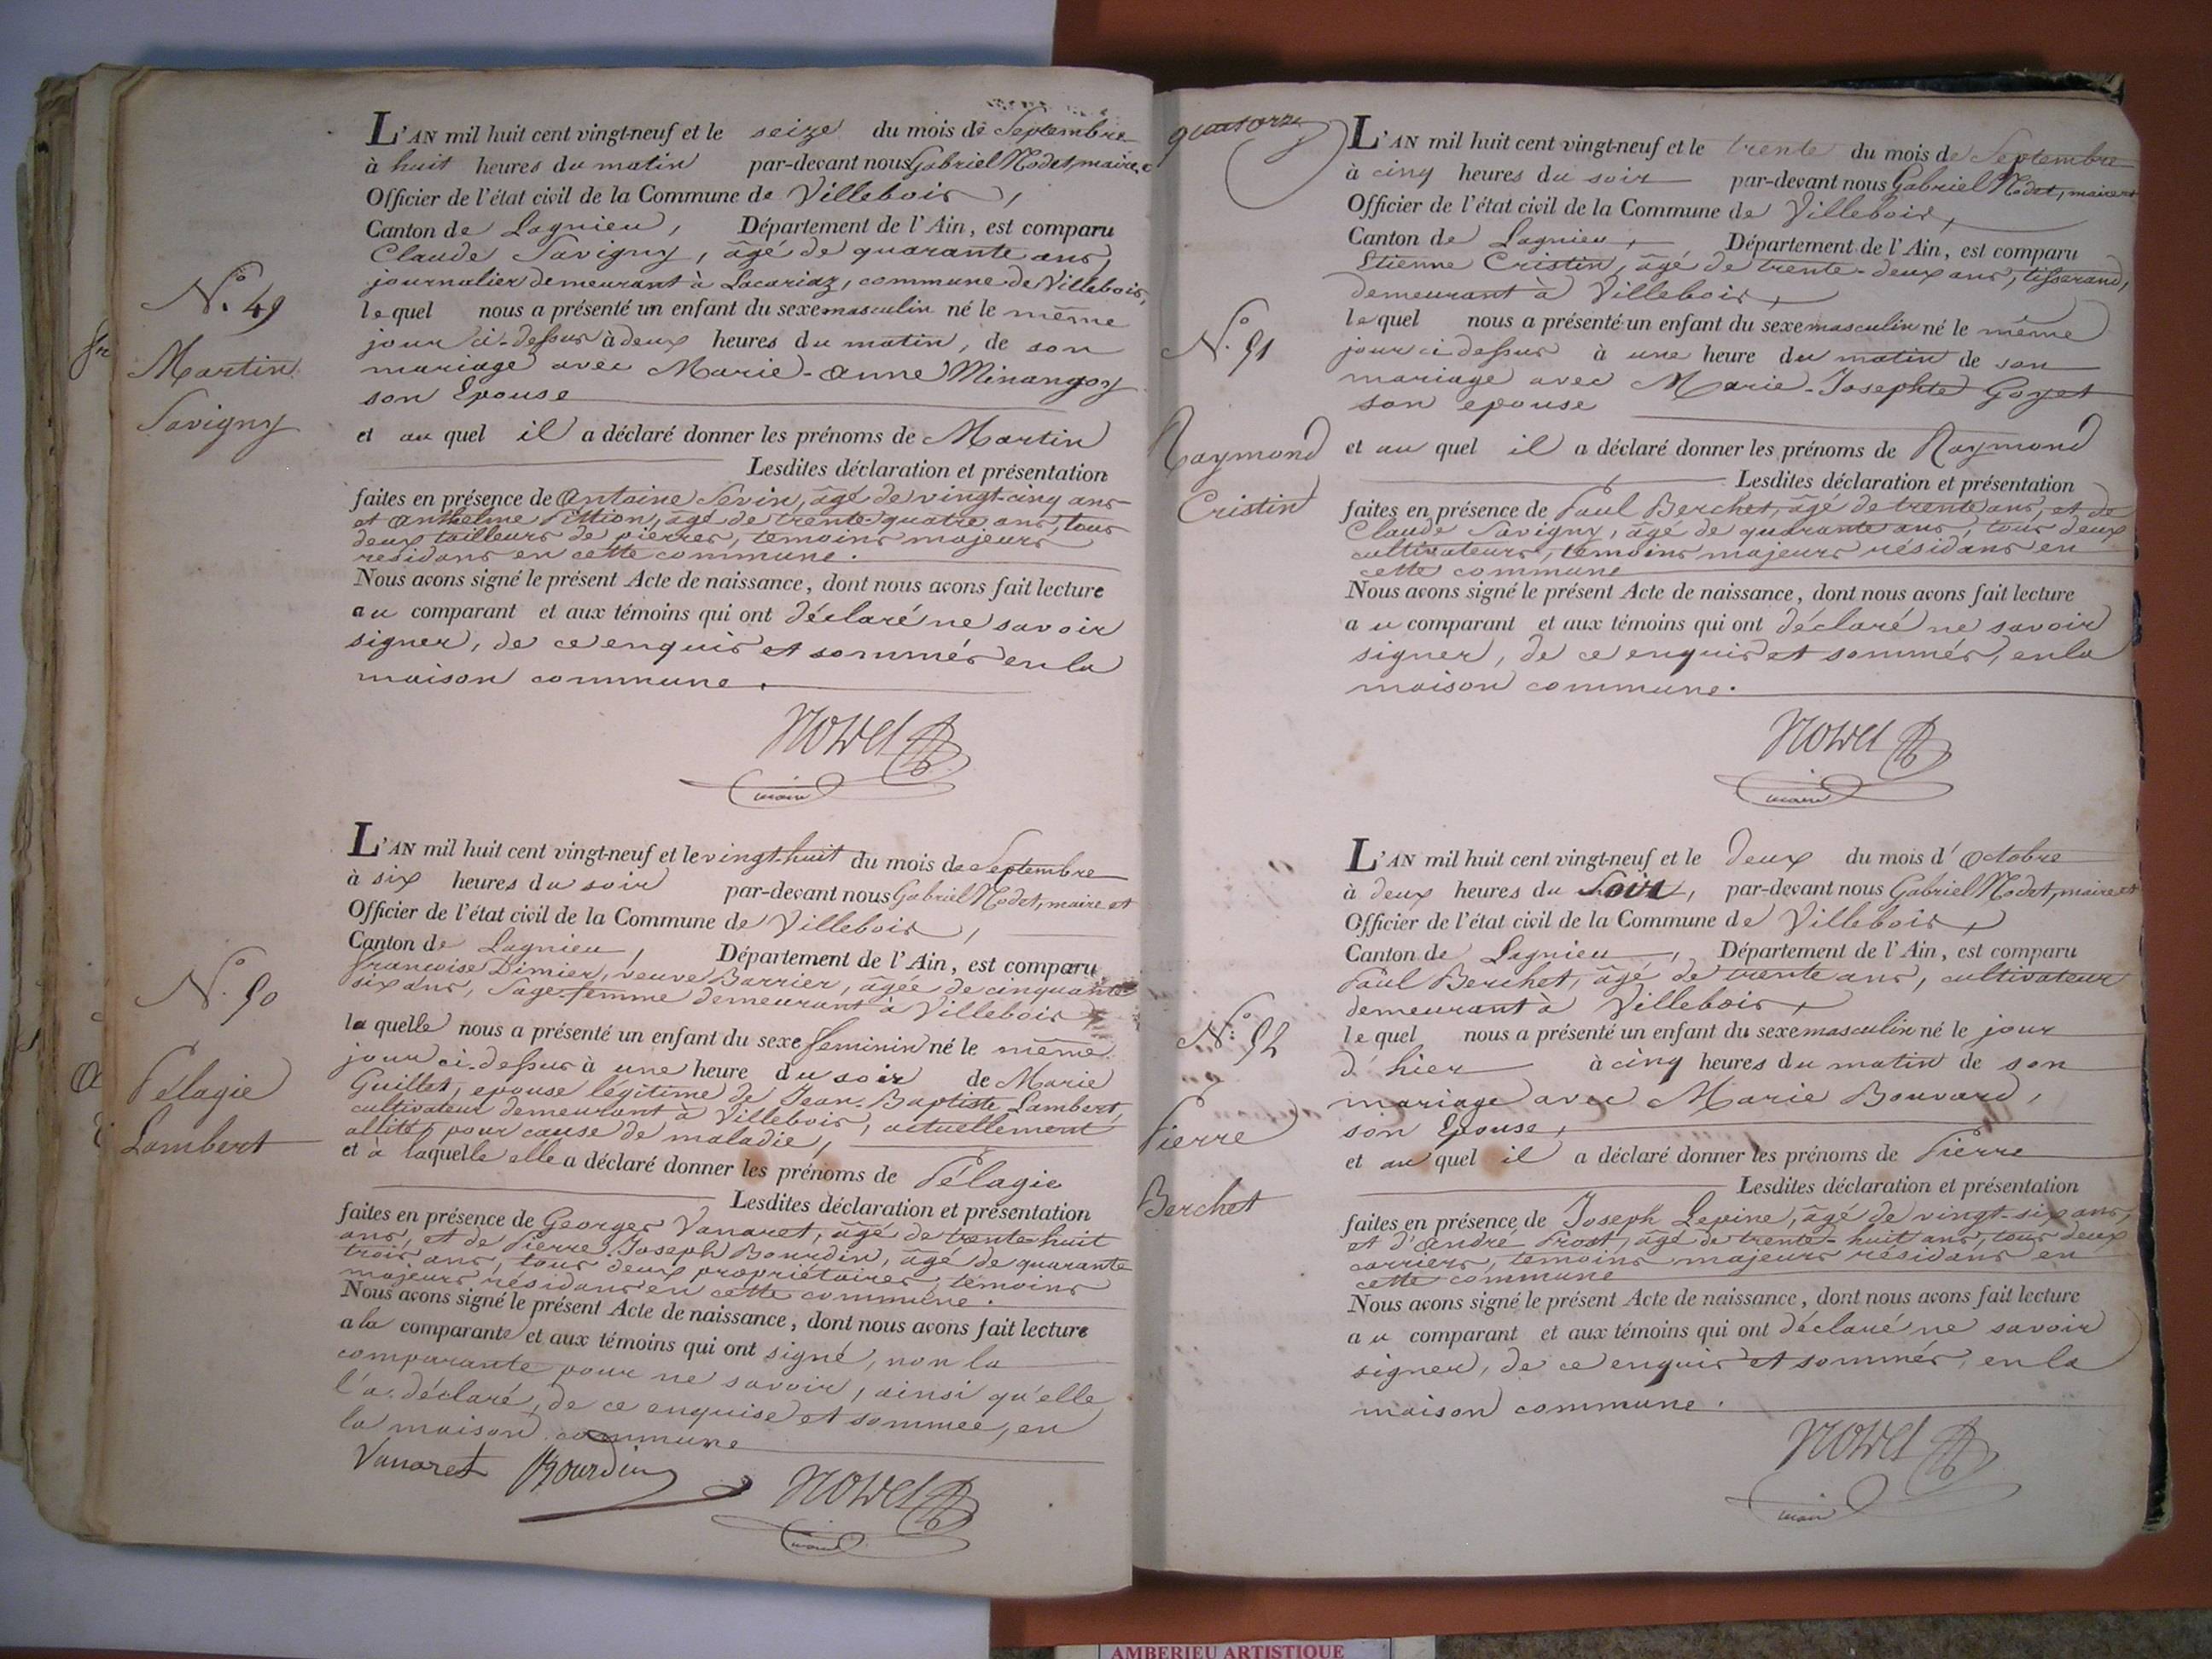 L'AN mil huit cent vingt-neuf et le seize du mois de Septembre
à huit heures du matin par-devant nous Gabriel Nodet, maire,
Officier de l'état civil de la Commune de Villebois,
Canton de Lagnieu, Département de l'Ain, est comparu
Claude Savigny, âgé de quarante ans,
journalier demeurant à Lacariaz, commune de Villebois,
lequel nous a présenté un enfant du sexe masculin né le même
jour ci-dessus à deux heures du matin, de son
mariage avec Marie-Anne Minangoy
son Epouse
et au quel il a déclaré donner les prénoms de Martin
Lesdites déclaration et présentation
faites en présence de Antoine Sevin, âgé de vingt-cinq ans
et Anthelme Pittion, âgé de trente quatre ans, tous
deux tailleurs de pierres, temoins majeurs
residans en cette commune.
Nous avons signé le présent Acte de naissance, dont nous avons fait lecture
au comparant et aux témoins qui ont déclaré ne savoir
signer, de ce enquis et sommés en la
maison commune.
Nodet
maire
N.º 49
Martin
Savigny
L'AN mil huit cent vingt-neuf et le vingt-huit du mois de Septembre
à six heures du soir par-devant nous Gabriel Nodet, maire et
Officier de l'état civil de la Commune de Villebois,
Canton de Lagnieu, Département de l'Ain, est comparu
françoise Dimier, veuve Barrier, agée de cinquante
six ans, Sage-femme demeurant à Villebois
la quelle nous a présenté un enfant du sexe feminin né le même
jour ci-dessus à une heure du soir de Marie
Guillet, epouse légitime de Jean-Baptiste Lambert,
cultivateur demeurant à Villebois, actuellement
allité pour cause de maladie,
et à laquelle elle a déclaré donner les prénoms de Pélagie
Lesdites déclaration et présentation
faites en présence de Georges Vanaret, âgé de trente-huit
ans, et de Pierre-Joseph Bourdin, âgé de quarante
trois ans, tous deux propriétaires, témoins
majeurs résidans en cette commune.
Nous avons signé le présent Acte de naissance, dont nous avons fait lecture
a la comparante et aux témoins qui ont signé, non la
comparante pour ne savoir, ainsi qu'elle
l'a déclaré, de ce enquise et sommée, en
la maison commune
Vanaret Bourdin Nodet
maire
N.º 50
Pélagie
Lambert
quatorze
L'AN mil huit cent vingt-neuf et le trente du mois de Septembre
à cinq heures du soir par-devant nous Gabriel Nodet, maire et
Officier de l'état civil de la Commune de Villebois,
Canton de Lagnieu, Département de l'Ain, est comparu
Etienne Cristin, âgé de trente-deux ans, tisserand,
demeurant à Villebois,
lequel nous a présenté un enfant du sexe masculin né le même
jour ci dessus à une heure du matin de son
mariage avec Marie-Josephte Goyet
son epouse
et au quel il a déclaré donner les prénoms de Raymond
Lesdites déclaration et présentation
faites en présence de Paul Berchet, âgé de trente ans, et de
Claude Savigny, âgé de quarante ans, tous deux
cultivateurs, témoins majeurs résidans en
cette commune
Nous avons signé le présent Acte de naissance, dont nous avons fait lecture
au comparant et aux témoins qui ont déclaré ne savoir
signer, de ce enquis et sommés, en la
maison commune.
Nodet
maire
N.º 51
Raymond
Cristin
L'AN mil huit cent vingt-neuf et le deux du mois d'Octobre
à deux heures du Soir, par-devant nous Gabriel Nodet, maire et
Officier de l'état civil de la Commune de Villebois,
Canton de Lagnieu, Département de l'Ain, est comparu
Paul Berchet, âgé de trente ans, cultivateur
demeurant à Villebois,
lequel nous a présenté un enfant du sexe masculin né le jour
d'hier à cinq heures du matin de son
mariage avec Marie Bouvard,
son Epouse,
et au quel il a déclaré donner les prénoms de Pierre
Lesdites déclaration et présentation
faites en présence de Joseph Lepine, âgé de vingt-six ans,
et d'André Prost, âgé de trente-huit ans, tous deux
carriers, temoins majeurs résidans en
cette commune
Nous avons signé le présent Acte de naissance, dont nous avons fait lecture
au comparant et aux témoins qui ont déclaré ne savoir
signer, de ce enquis et sommés, en la
maison commune.
Nodet
maire
N.º 52
Pierre
Berchet
AMBERIEU ARTISTIQUE